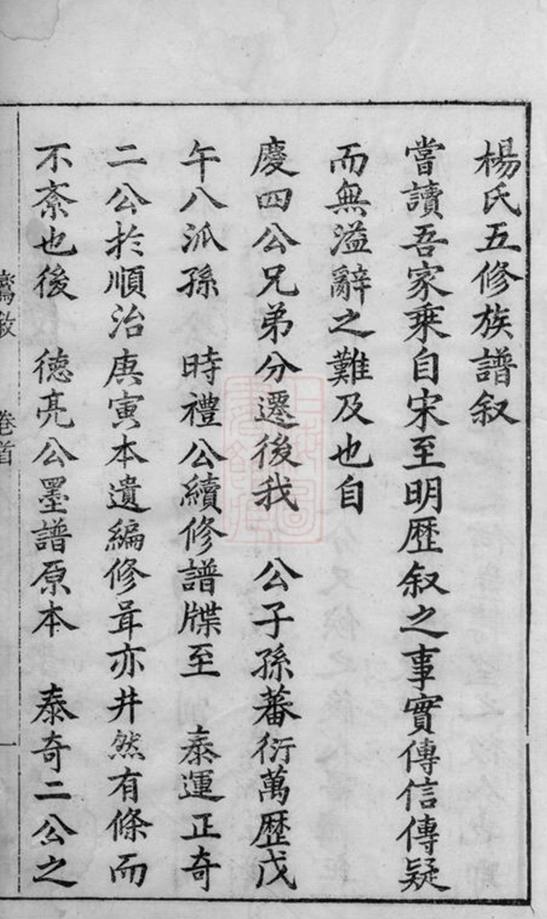 楊氏五修族譜叙
嘗讀吾家乘自宋至明歷叙之事實傳信傳疑
而無溢辭之難及也自
慶四公兄弟分遷後我　公子孫蕃衍萬歷戊
午八派孫　時禮公續修譜牒至　泰運正奇
二公於順治庚寅本遺編修葺亦井然有條而
不紊也後　德亮公墨譜原本　泰奇二公之
卷首
一